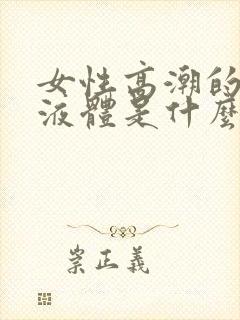 女性高潮的
液體是什麼
崇正義